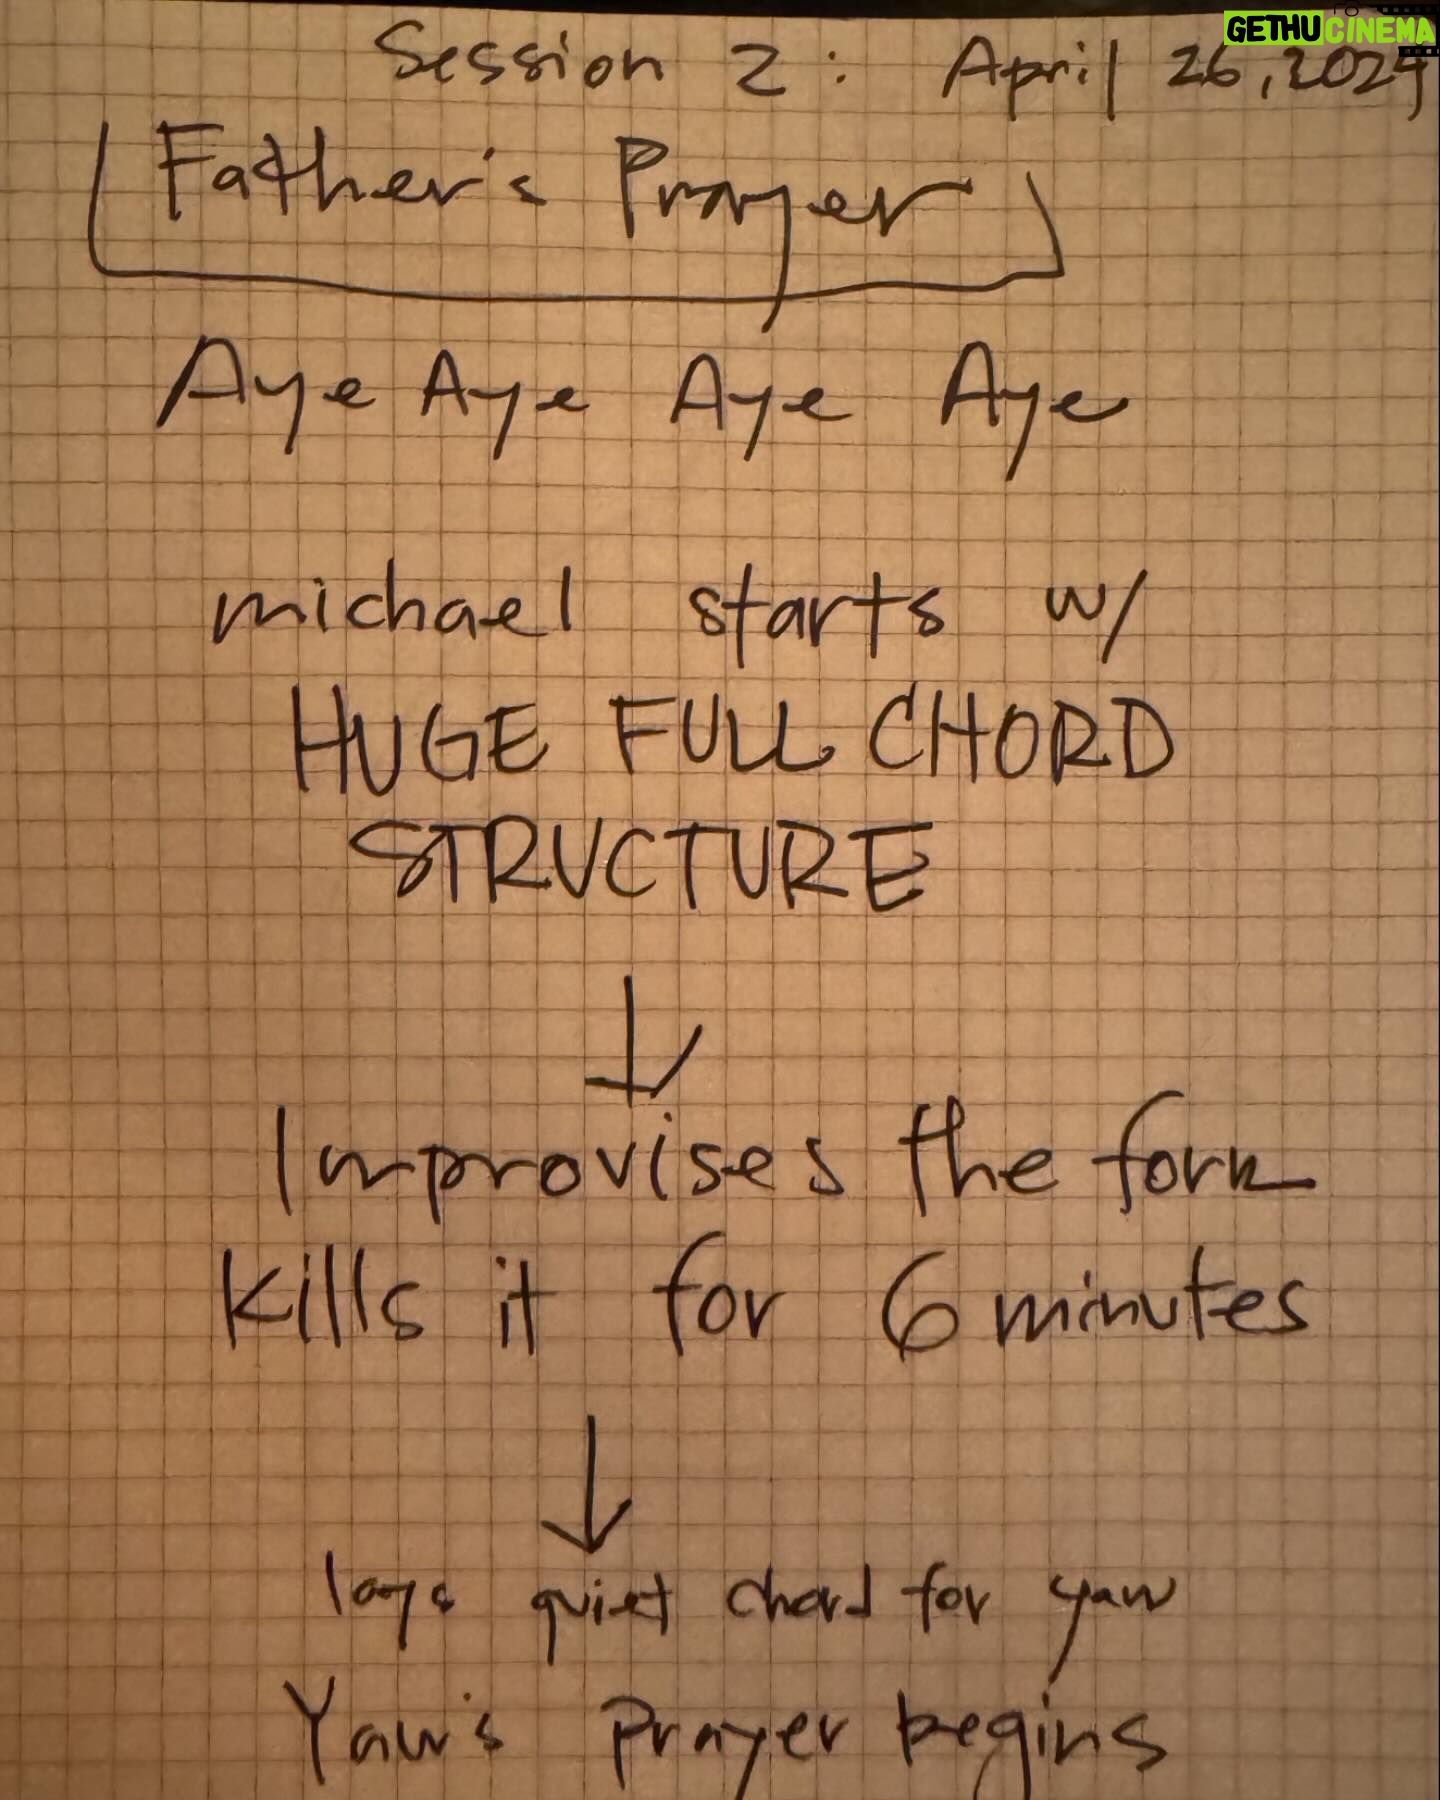 GETHUCINEMA
Session 2: April 26, 2024
Father's Prayer
Aye Aye Aye Aye
michael starts w/
HUGE FULL CHORD
STRUCTURE
Improvises the form
kills it for 6 minutes
lays quiet chord for yaw
Yaw's prayer begins